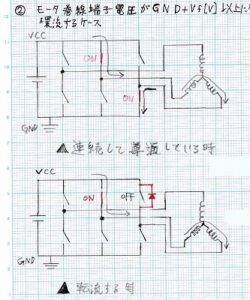 ② モータ巻線端子電圧がGND+Vf[V]以上に
環流するケース
VCC
ON
ON
GND
▲連続して導通している時
VCC
ON
OFF
GND
▲転流する時